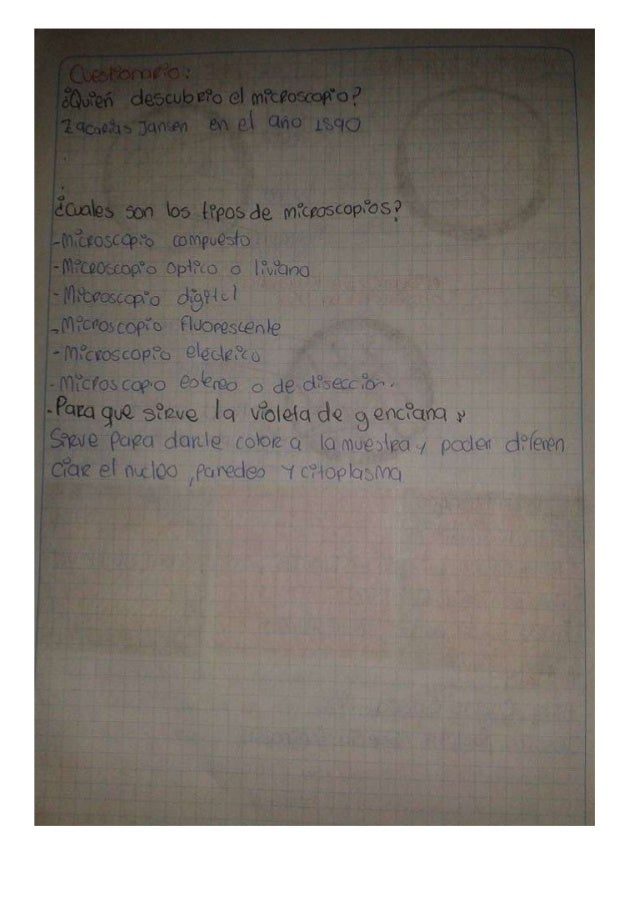 Cuestionario:
¿Quien descubrio el microscopio?
Zacarias Jansen en el año 1890
¿Cuales son los tipos de microscopios?
-Microscopio compuesto
-Microscopio optico o liviano
-Microscopio digital
-Microscopio fluorescente
-Microscopio electrico
-Microscopio estereo o de diseccion.
-Para que sirve la violeta de genciana?
Sirve para darle color a la muestra y poder diferen
ciar el nucleo, paredes y citoplasma